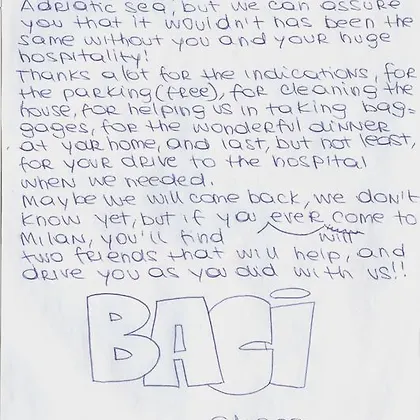 Adriatic sea, but we can assure
you that it wouldn't has been the
same without you and your huge
hospitality!
Thanks alot for the indications, for
the parking (free), for cleaning the
house, for helping us in taking bag=
gages, for the wonderful dinner
at your home, and last, but not least,
for your drive to the hospital
when we needed.
Maybe we will come back, we don't
know yet, but if you ever come to
will
Milan, you'll find
two friends that will help, and
drive you as you did with us!!
BACi